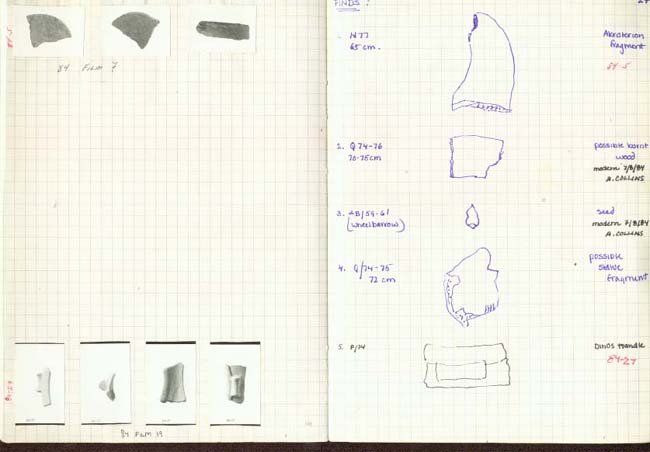 84-5
84 FILM 7
84-27
84 FILM 19
FINDS:
27
N77
65 cm.
Akroterion
fragment
84-5
2. Q 74-76
70-75cm
possible burnt
wood
modern 7/8/84
A. COLLINS
3. AB/59-61
(wheelbarrow)
seed
modern 7/8/84
A. COLLINS
4. Q/74-75
72 cm
possible
statue
fragment
5. P/74
Dinos Handle
84-27